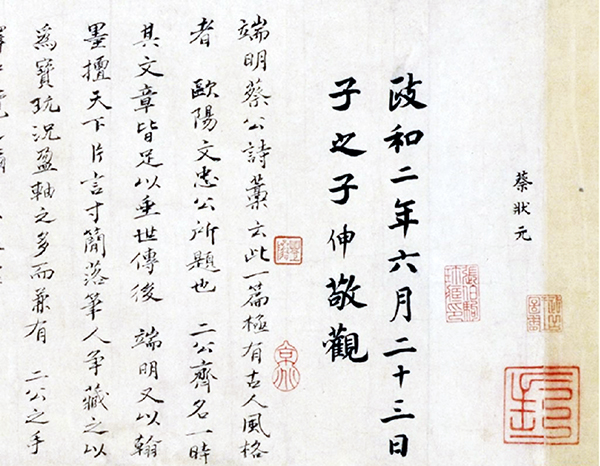 蔡狀元
張伯駒
珍藏印
政和二年六月二十三日
子之子伸敬觀
端明蔡公詩藁云此一篇極有古人風格
者 歐陽文忠公所題也 二公齊名一時
其文章皆足以垂世傳後 端明又以翰
墨擅天下片言寸簡落筆人爭藏之以
爲寶玩況盈軸之多而兼有 二公之手